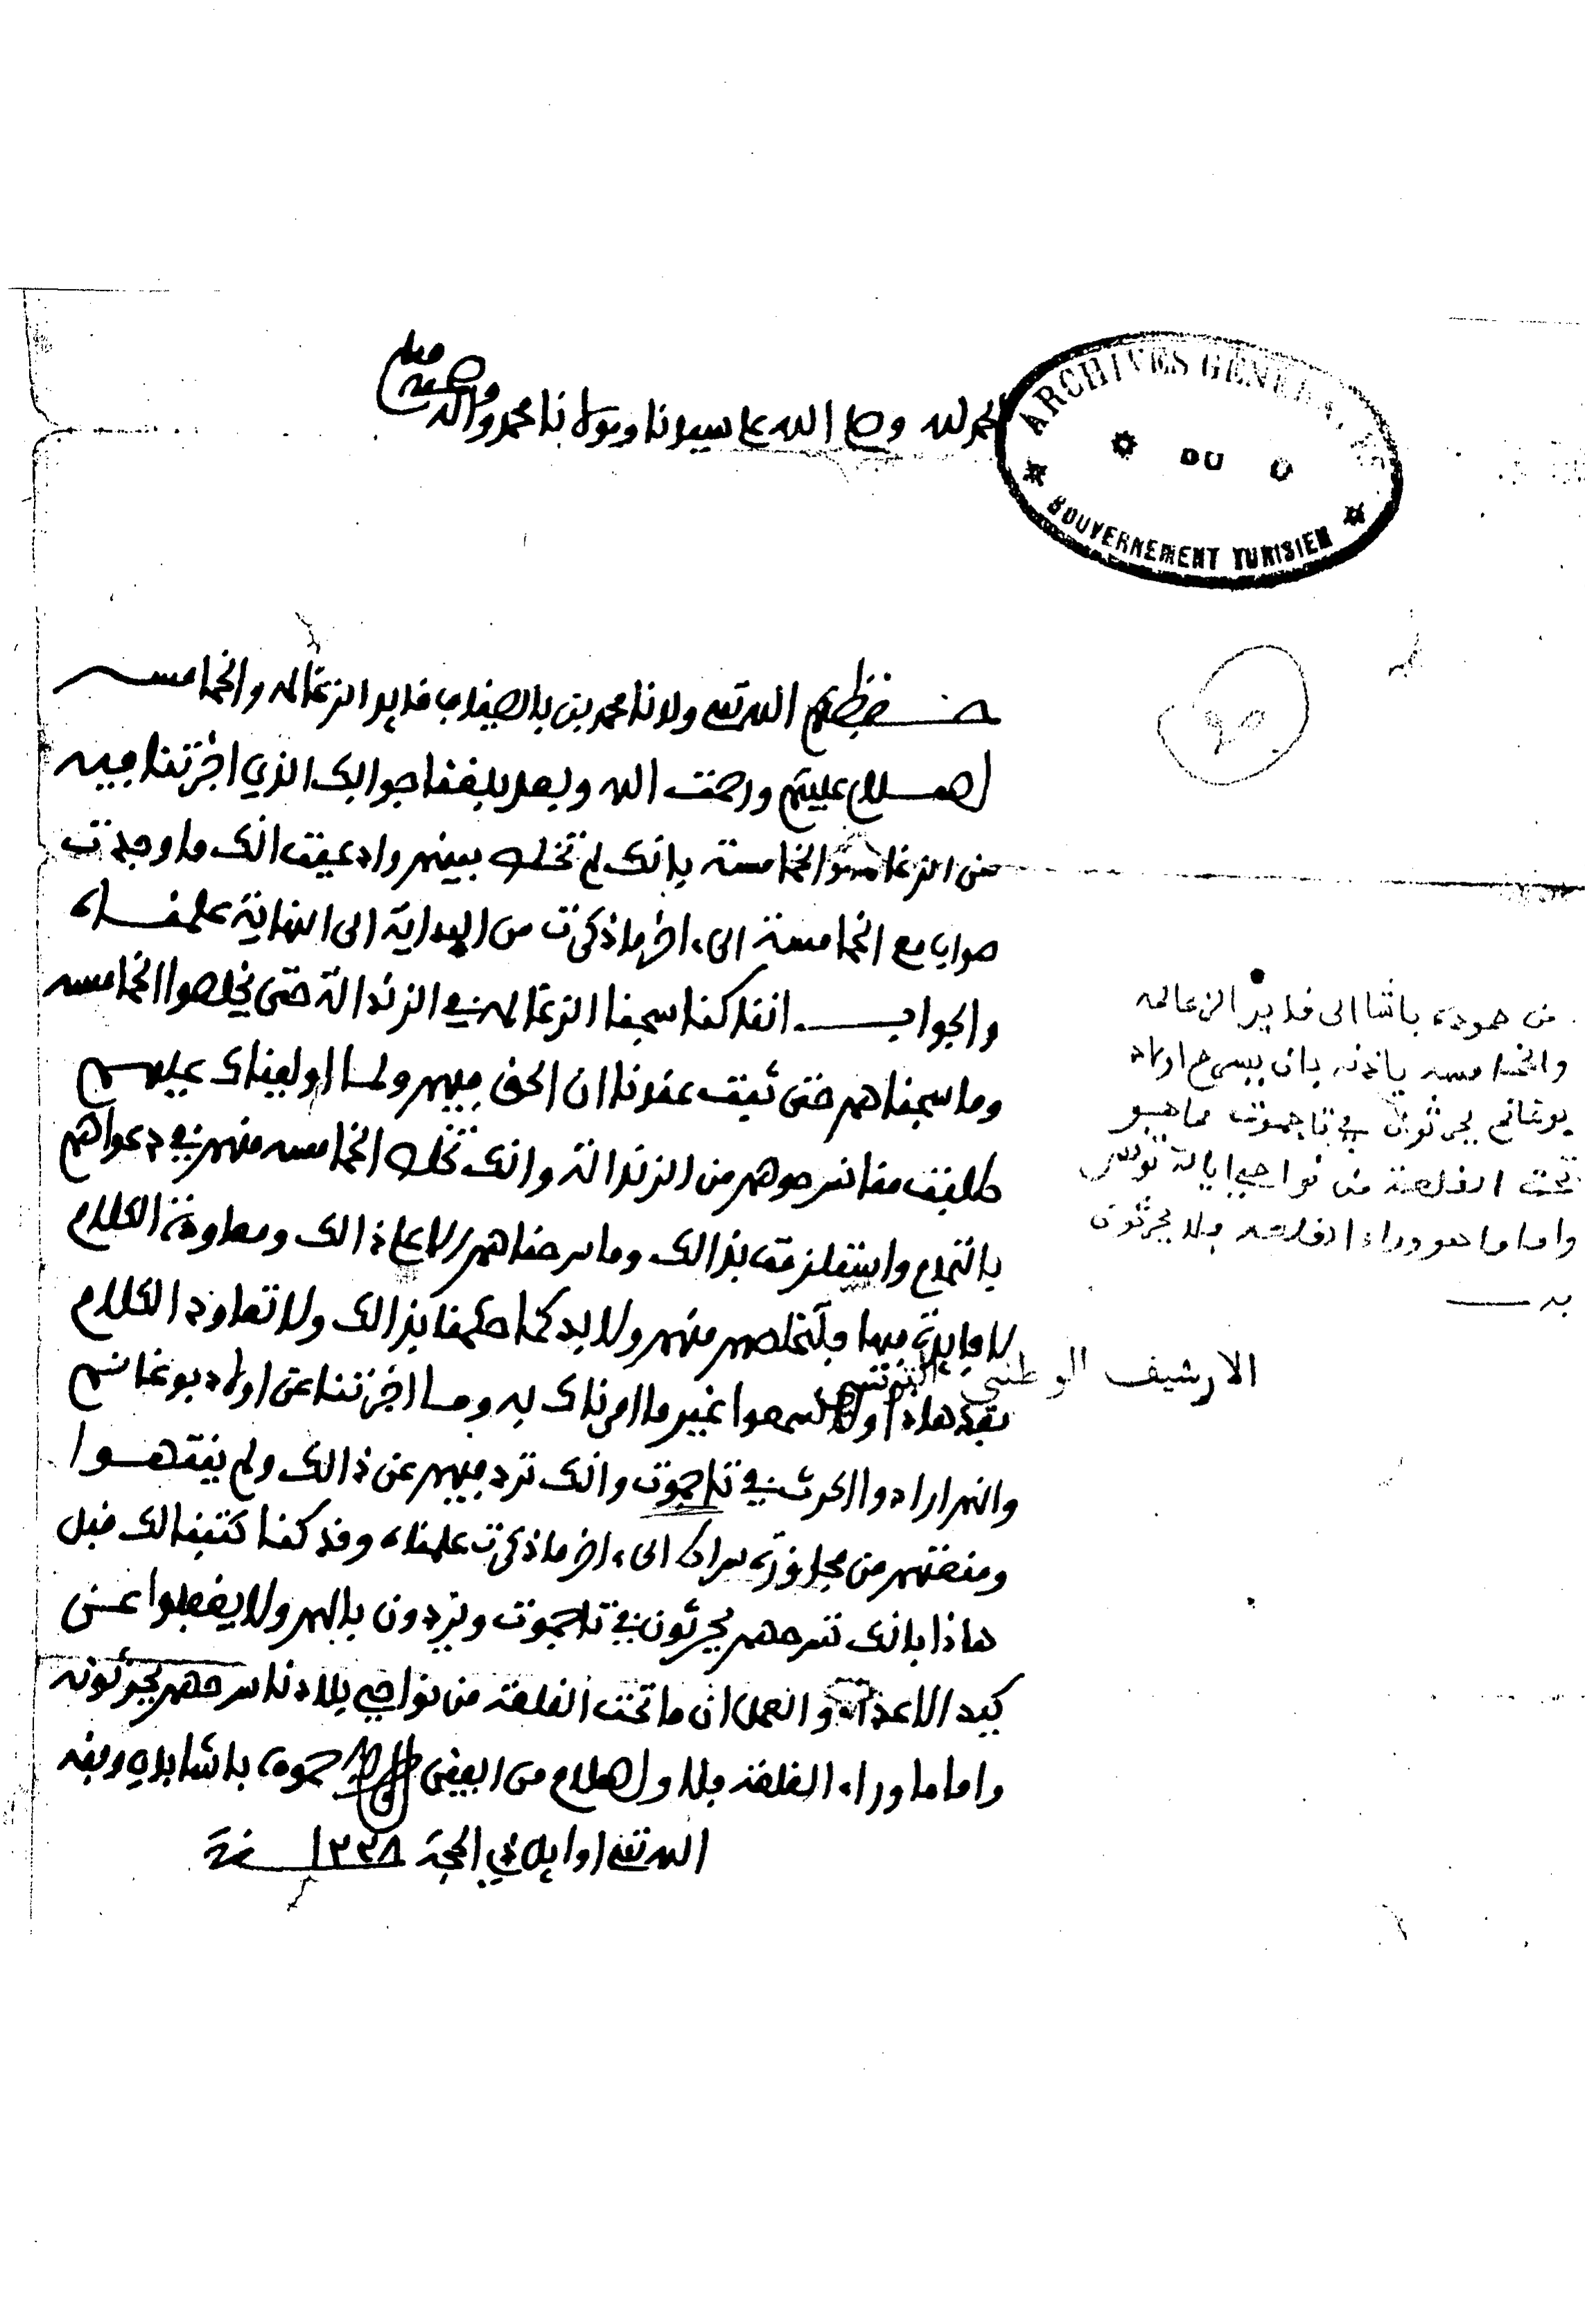 الحمد لله وصلى الله على سيدنا ومولانا محمد وآله وصحبه وسلم
ARCHIVES GENERALES
DU
GOUVERNEMENT TUNISIEN
حفظكم الله تعالى ولدنا محمد بن بالضياف قايد الزغالمه والخمامسه
السلام عليكم ورحمت الله وبعد بلغنا جوابك الذي اخبرتنا فيه
من الزغالمه والخمامسة بانك لم تخلص بينهم وادعيت انك ما وجدت
صوابا مع الخمامسة الى ءاخر ما ذكرت من البداية الى النهاية علمناه
والجواب اننا كنا سجنا الزغالمه في الزندالة حتى يخلصوا الخمامسه
وما سجناهم حتى ثبت عندنا ان الحق فيهم ولما اوليناك عليهم
طلبت منا نسرحوهم من الزندالة وانك تخلص الخمامسه منهم في دعواهم
بالتمام والتزمت بذالك وما سرحناهم الا على ذالك ومعاودة الكلام
لا فايدة فيها فلتخلصهم منهم ولا بد كما حكمنا بذالك ولا تعاود الكلام
بعد هاذا ولا تسمعوا غير ما امرناك به وما اخبرتنا عن اولاد بوغانم
وانهم ارادوا الحرث في تاجموت وانك ترد فيهم عن ذالك ولم ينتهوا
ومنعتهم من مجاوزة سراط الى ءاخر ما ذكرت علمناه وقد كنا كتبنا لك قبل
هاذا بانك تسرحهم يحرثون في تاجموت ويردون بالهم ولا يغفلوا عن
كيد الاعداء والعمل ان ما تحت القلعة من نواحي بلادنا سرحهم يحرثونه
واما ما وراء القلعة فلا والسلام من الفقير الى ربه حموده باشا باي وفقه
الله تعالى اوايل ذي الحجة ١٢٢٨ سنة
من حموده باشا الى قايد الزغالمه
والخمامسه ياذنه بان يسرح اولاد
بوغانم يحرثون في تاجموت مما هو
تحت القلعة من نواحي ايالة تونس
واما ما هو وراء القلعه فلا يحرثون
به
الارشيف الوطني التونسي